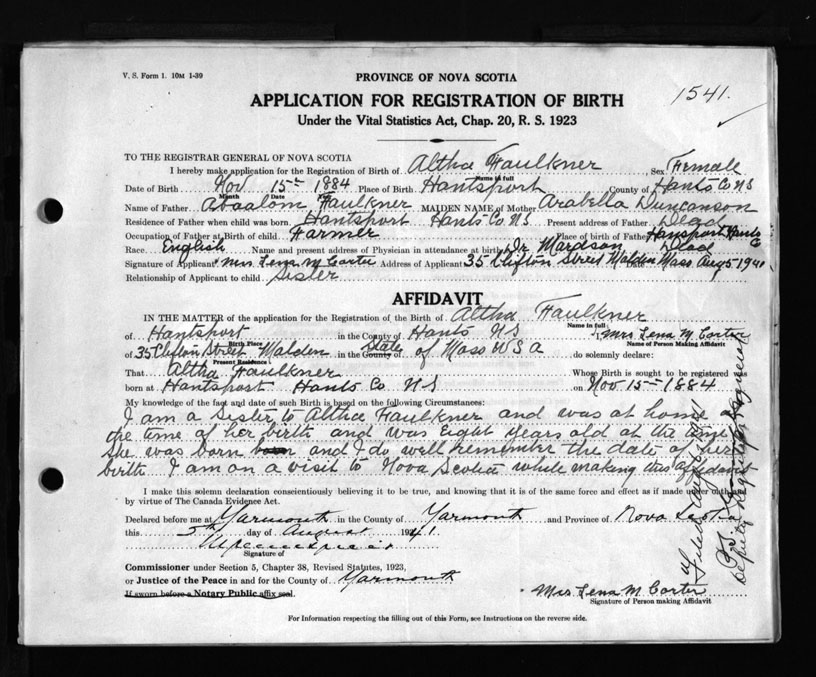 V. S. Form 1. 10M 1-39
PROVINCE OF NOVA SCOTIA
APPLICATION FOR REGISTRATION OF BIRTH
1541.
Under the Vital Statistics Act, Chap. 20, R. S. 1923
TO THE REGISTRAR GENERAL OF NOVA SCOTIA
I hereby make application for the Registration of Birth of Altha Faulkner Sex Female
Name in full
Date of Birth Nov 15th 1884 Place of Birth Hantsport County of Hants Co NS
Month Date Year
Name of Father Absalom Faulkner MAIDEN NAME of Mother Arabella Duncanson
Residence of Father when child was born Hantsport Hants Co. NS Present address of Father Dead
Occupation of Father at Birth of child Farmer Place of birth of Father Hantsport Hants Co
Race English Name and present address of Physician in attendance at birth Dr Mardson Dead
Signature of Applicant Mrs Lena M Carter Address of Applicant 35 Clifton Street Malden Mass Date Aug 5 1941
Relationship of Applicant to child Sister
AFFIDAVIT
IN THE MATTER of the application for the Registration of the Birth of Altha Faulkner
Name in full
of Hantsport in the County of Hants NS Mrs Lena M. Carter
Birth Place Name of Person Making Affidavit
of 35 Clifton Street Malden in the County of State of Mass USA do solemnly declare:
Present Residence
That Altha Faulkner Whose Birth is sought to be registered was
born at Hantsport Hants Co NS on Nov 15th 1884
My knowledge of the fact and date of such Birth is based on the following Circumstances:
I am a Sister to Altha Faulkner and was at home at
the time of her birth and was Eight years old at the time
she was born born and I do well remember the date of her
birth. I am on a visit to Nova Scotia while making this affidavit
I make this solemn declaration conscientiously believing it to be true, and knowing that it is of the same force and effect as if made under oath and
by virtue of The Canada Evidence Act.
Declared before me at Yarmouth in the County of Yarmouth and Province of Nova Scotia
this 5th day of August 1941.
Signature of
Commissioner under Section 5, Chapter 38, Revised Statutes, 1923,
or Justice of the Peace in and for the County of Yarmouth
If sworn before a Notary Public affix seal.
Mrs Lena M. Carter
Signature of Person making Affidavit
For Information respecting the filling out of this Form, see Instructions on the reverse side.
Filed Aug
Deputy Registrar